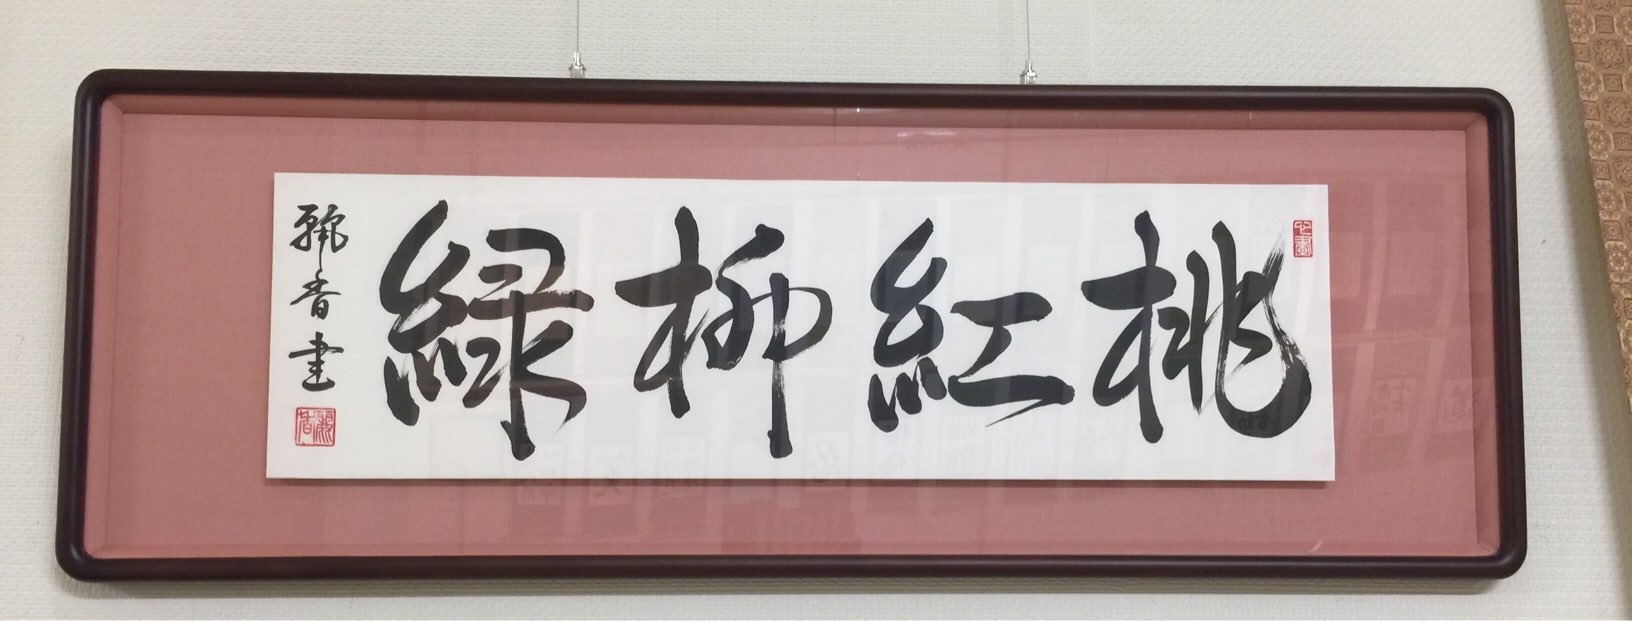 桃紅柳緑
香書